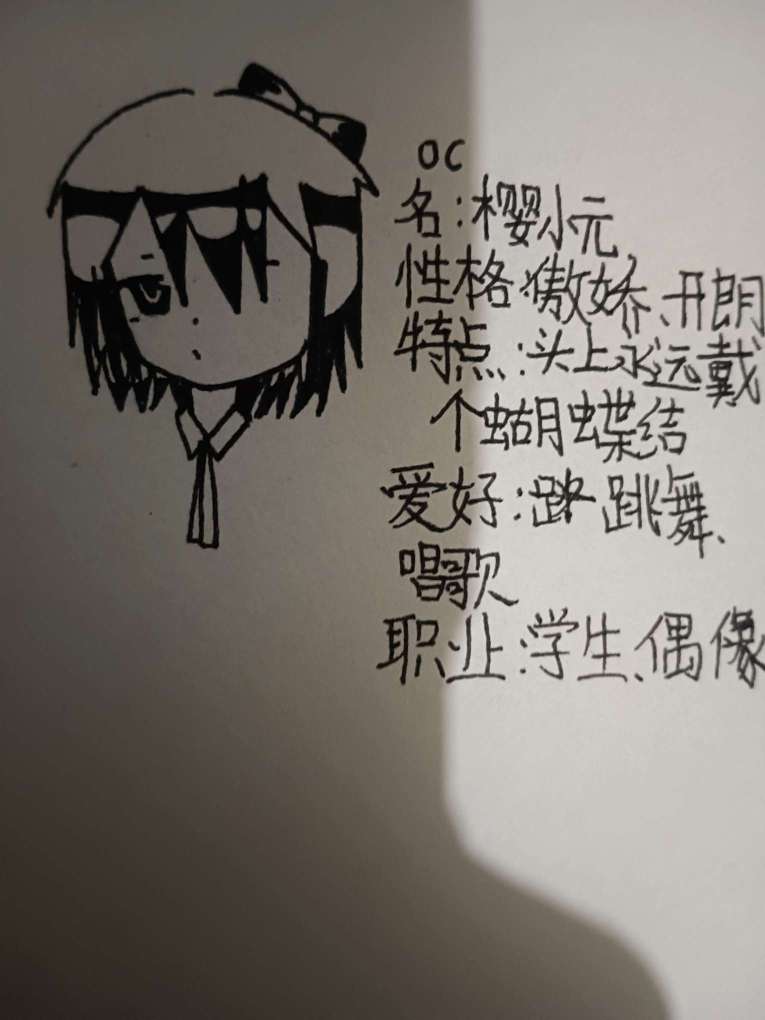 OC
名:樱小元
性格:傲娇、开朗
特点:头上永远戴
个蝴蝶结
爱好:跳舞、
唱歌
职业:学生、偶像